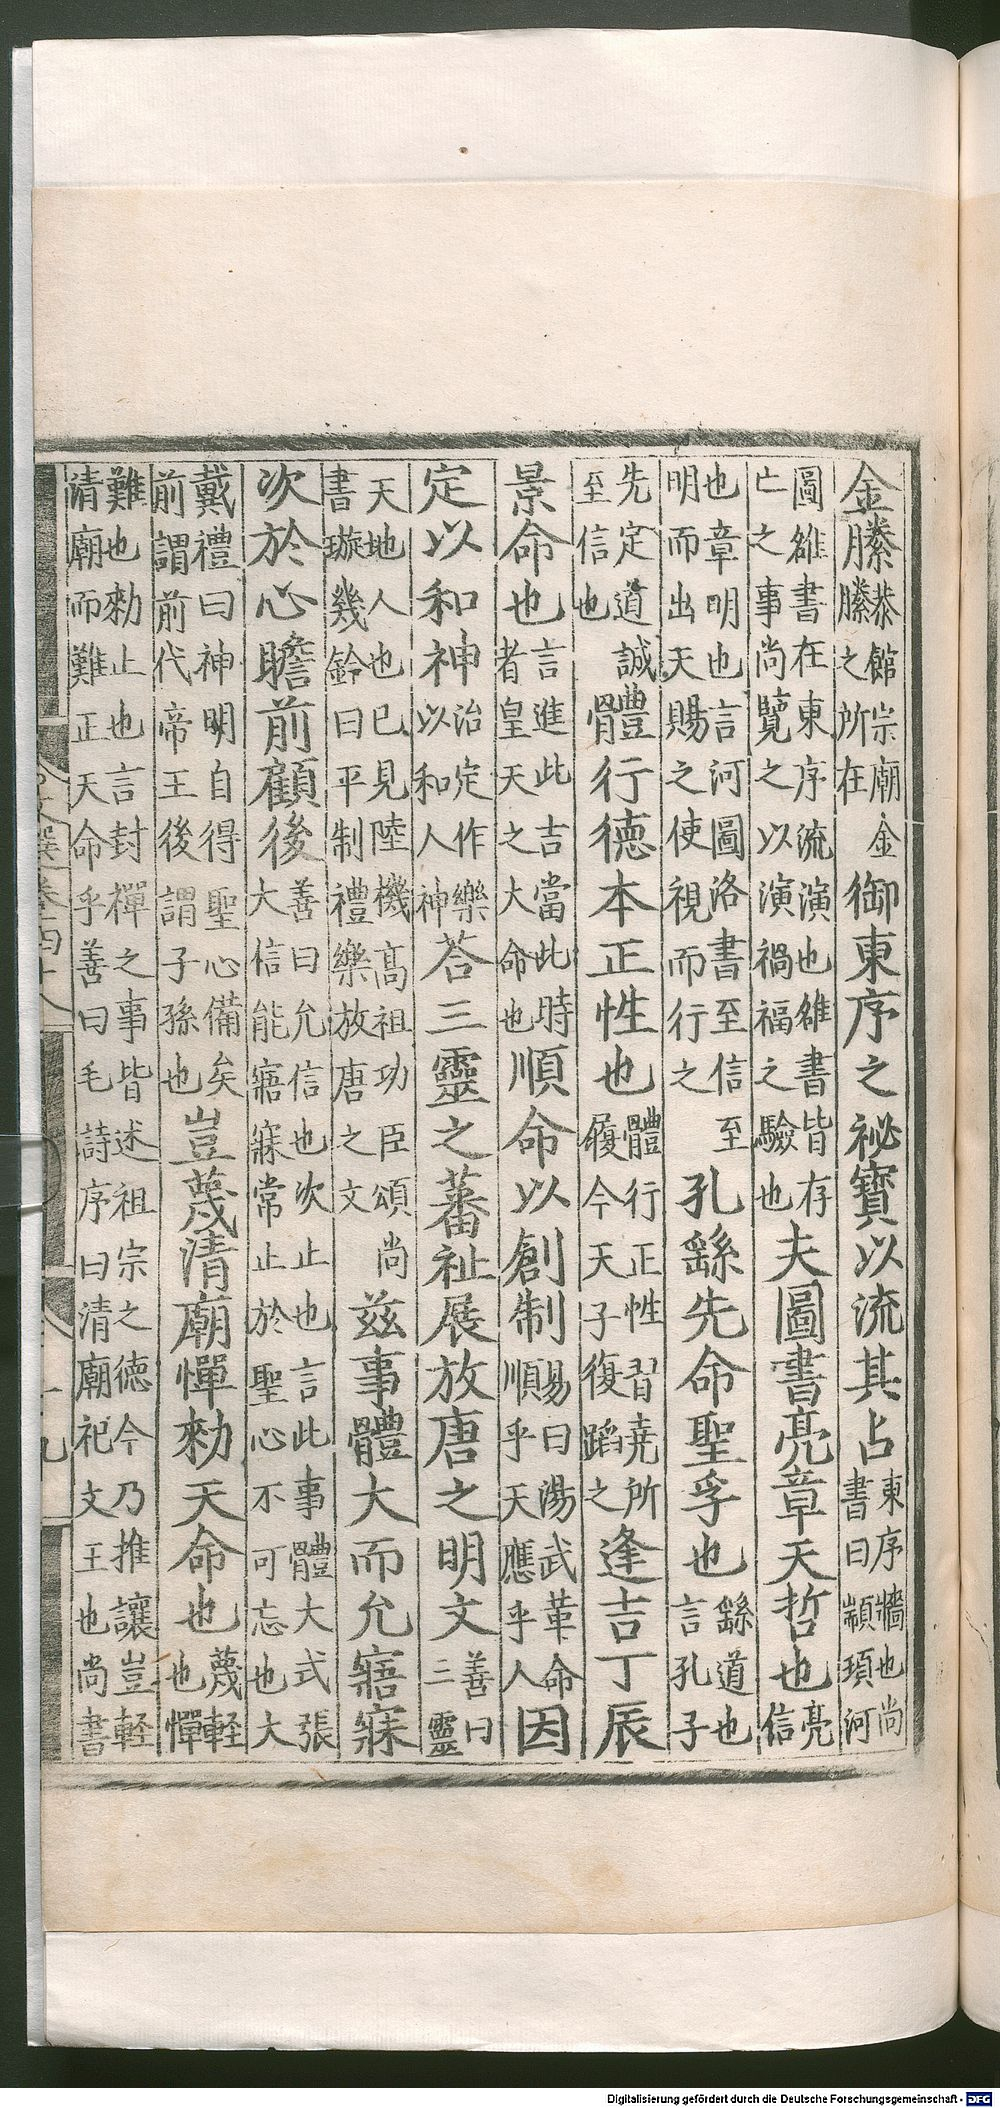 金縢恭館宗廟金縢之所在御東序之祕寶以流其占東序牆也尚書曰顓頊河
圖雒書在東序流演也雒書皆存亡之事尚覽之以演禍福之驗也夫圖書亮章天哲也亮信
也章明也言河圖洛書至信至明而出天賜之使視而行之孔繇先命聖孚也繇道也言孔子
先定道誠至信也體行德本正性也體行正性習堯所履今天子復蹈之逢吉丁辰
景命也言進此吉當此時者皇天之大命也順命以創制易曰湯武革命順乎天應乎人因
定以和神治定作樂以和人神荅三靈之蕃祉展放唐之明文善曰三靈
天地人也已見陸機高祖功臣頌尚書璇幾鈴曰平制禮樂放唐之文兹事體大而允寤寐
次於心瞻前顧後善曰允信也次止也言此事體大式張大信能寤寐常止於聖心不可忘也大
戴禮曰神明自得聖心備矣前謂前代帝王後謂子孫也豈蔑清廟憚勑天命也蔑軽也憚
難也勑止也言封禪之事皆述祖宗之德今乃推讓豈軽清廟而難正天命乎善曰毛詩序曰清廟祀文王也尚書
Digitalisierung gefördert durch die Deutsche Forschungsgemeinschaft - DFG